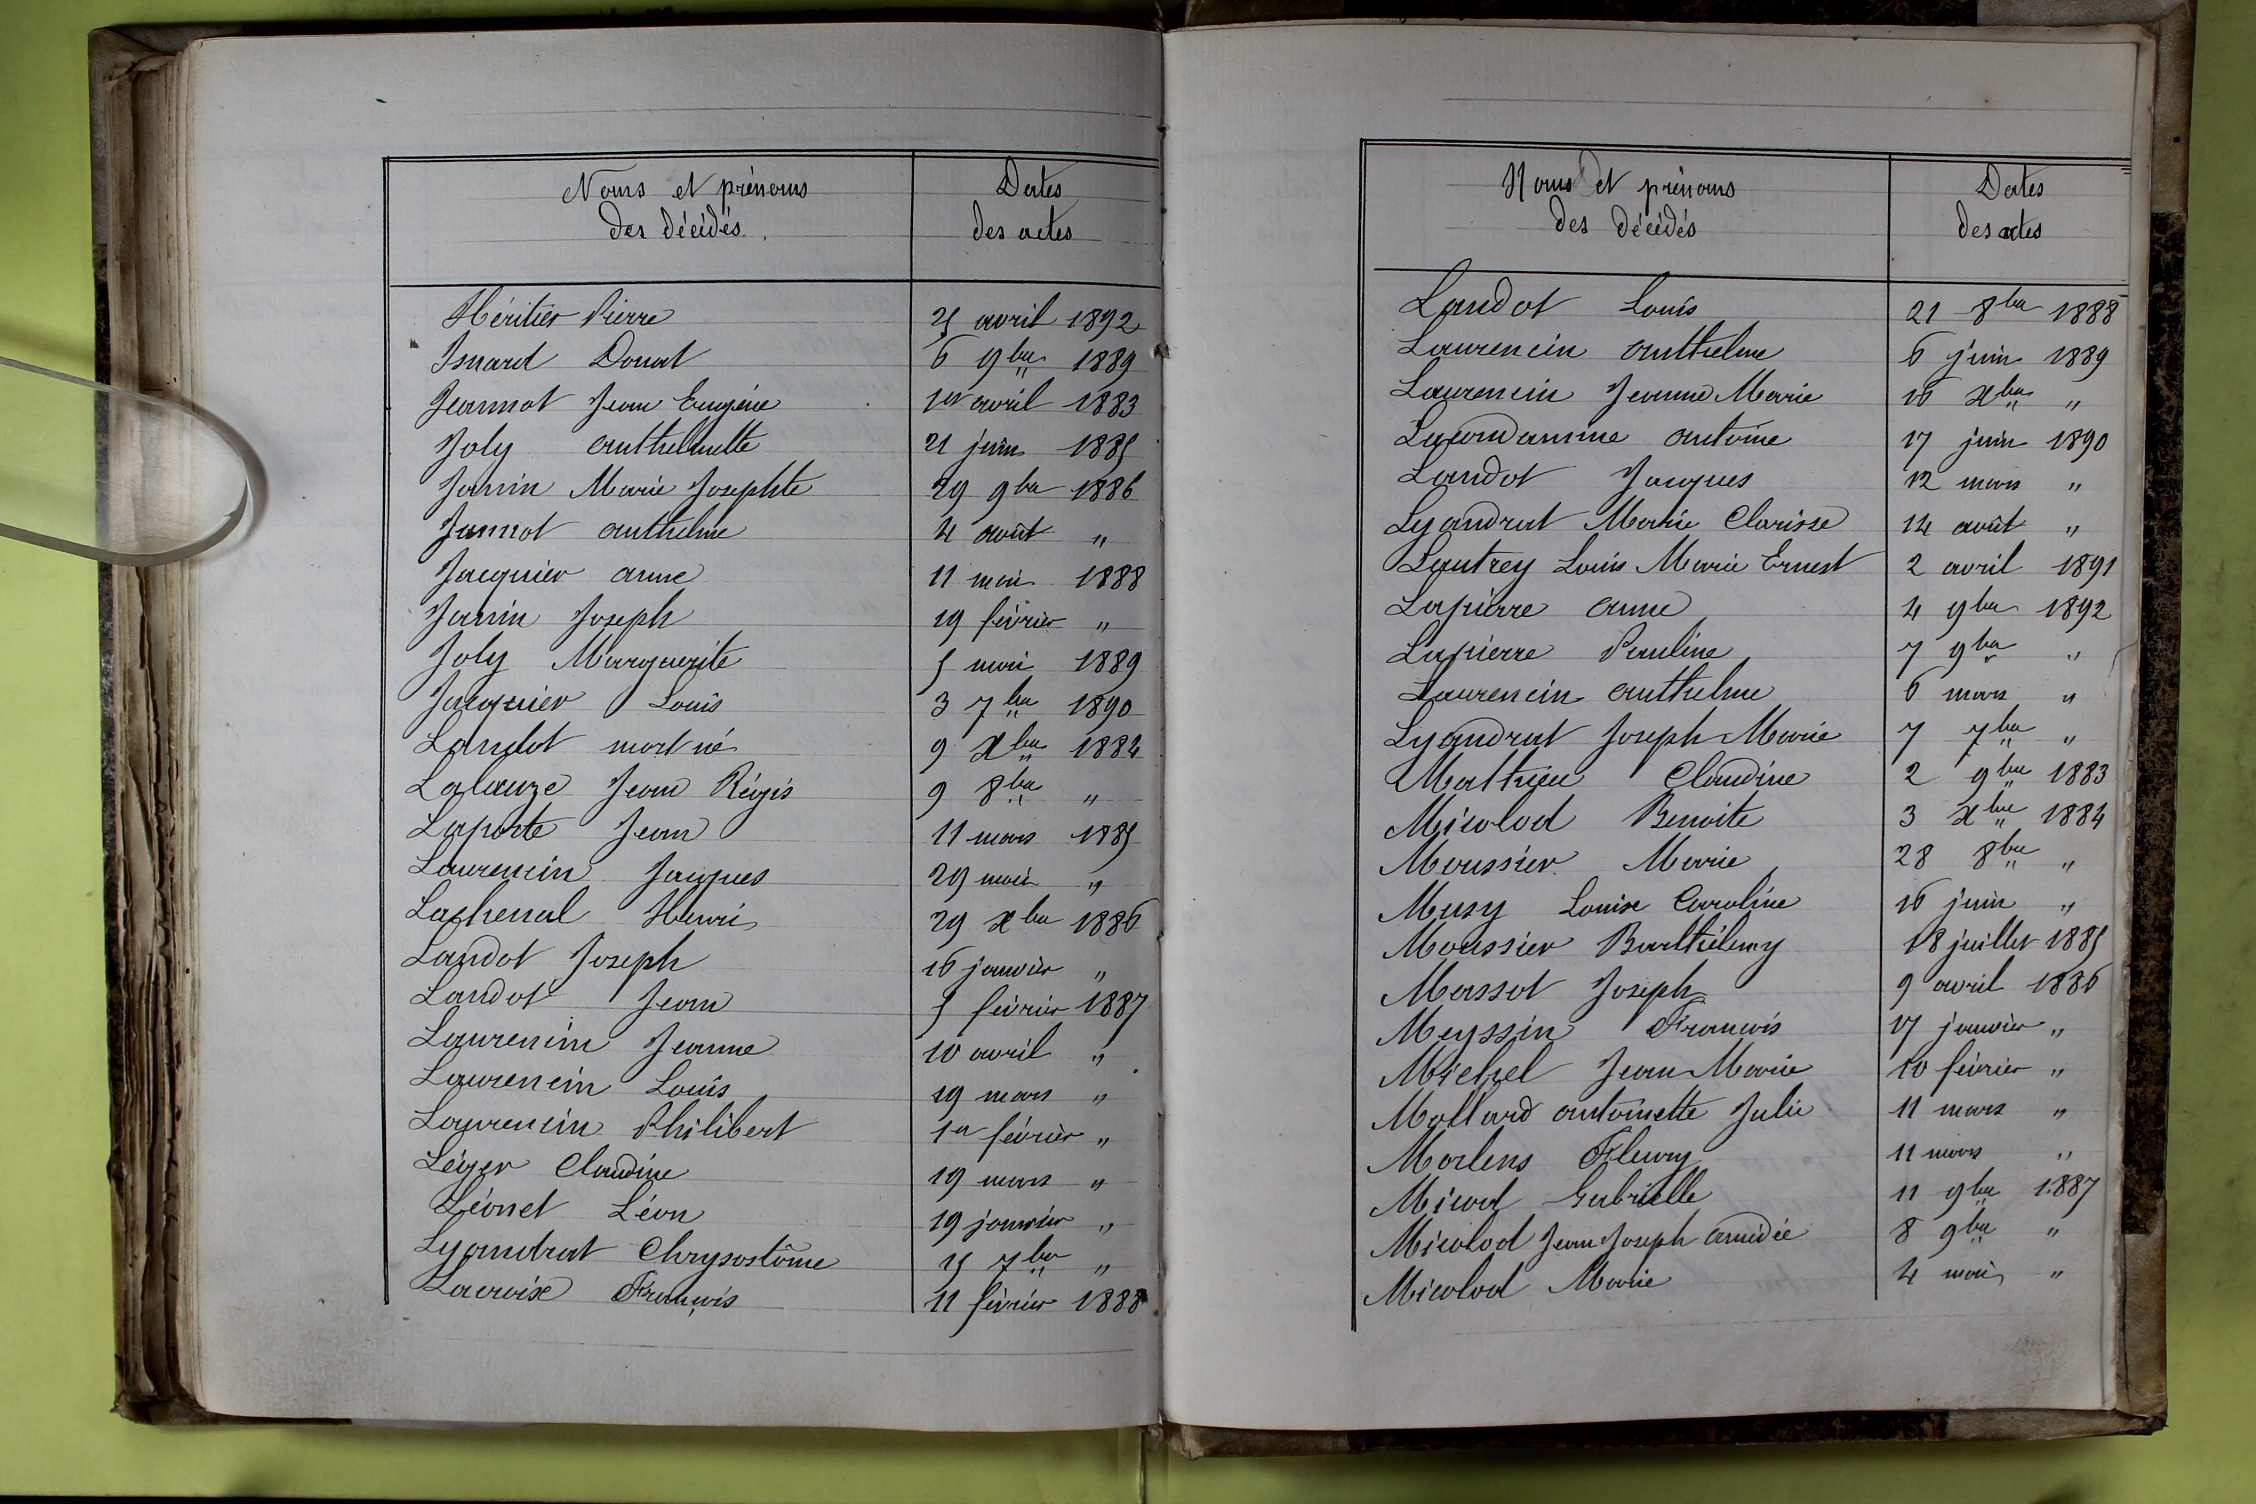 Noms et prénoms
des décédés.
Dates
des actes
Héritier Pierre 25 avril 1892
Isnard Donat 6 9bre 1889
Jeannot Jean Eugénie 1er avril 1883
Joly Anthelmette 21 juin 1885
Janin Marie Josephte 29 9bre 1886
Junnot Anthelme 4 août "
Jacquier Anne 11 mai 1888
Janin Joseph 19 février "
Joly Marguerite 5 mai 1889
Jacquier Louis 3 7bre 1890
Landot mort né 9 Xbre 1884
Lalauze Jean Régis 9 8bre "
Laporte Jean 11 mars 1885
Laurencin Jacques 29 mai "
Lachenal Henri 29 Xbre 1886
Landot Joseph 16 janvier "
Landot Jean 5 février 1887
Laurencin Jeanne 10 avril "
Laurencin Louis 19 mars "
Laurencin Philibert 1er février "
Léger Claudine 19 mars "
Léonet Léon 19 janvier "
Lyandrat Chrysostôme 25 7bre "
Lacroix François 11 février 1888
Noms et prénoms
des décédés
Dates
des actes
Landot Louis 21 8bre 1888
Laurencin Anthelme 6 juin 1889
Laurencin Jeanne Marie 16 Xbre "
Lacondamine Antoine 17 juin 1890
Landot Jacques 12 mars "
Lyandrat Marie Clarisse 14 août "
Lautrey Louis Marie Ernest 2 avril 1891
Lapierre Anne 4 9bre 1892
Lapierre Pauline 7 9bre "
Laurencin Anthelme 6 mars "
Lyandrat Joseph Marie 7 7bre "
Mathieu Claudine 2 9bre 1883
Micolod Benoite 3 Xbre 1884
Moussier Marie 28 8bre "
Musy Louise Caroline 16 juin "
Moussier Barthélemy 18 juillet 1885
Massot Joseph 9 avril 1886
Meyssin François 17 janvier "
Michel Jean Marie 10 février "
Mollard Antoinette Julie 11 mars "
Morlens Fleury 11 mars "
Micod Gabrielle 11 9bre 1887
Micolod Jean Joseph Amédée 8 9bre "
Micolod Marie 4 mai "